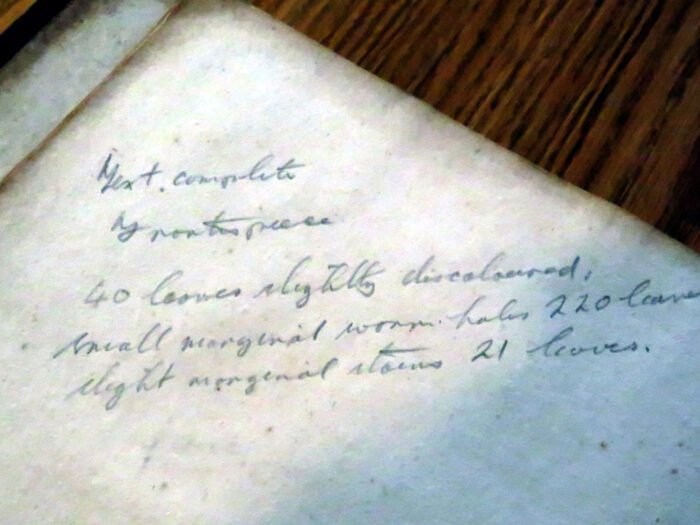 Text. complete
Frontispiece
40 leaves slightly discoloured,
small marginal worm-holes 220 leaves
slight marginal stains 21 leaves.